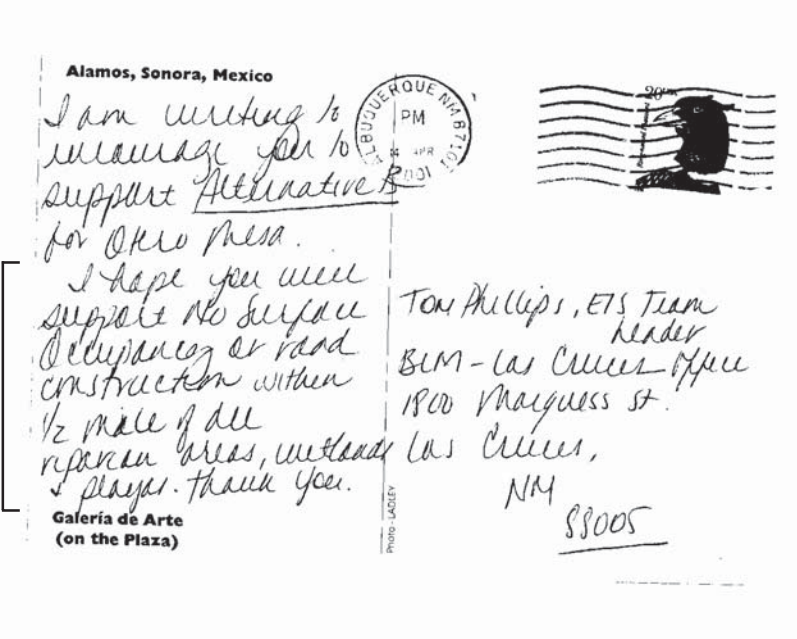 Alamos, Sonora, Mexico
I am writing to
encourage you to
support Alternative B
for Otero Mesa.
I hope you will
support No Surface
Occupancy or road
construction within
1/2 mile of all
riparian areas, wetlands
& playas. Thank you.
Galería de Arte
(on the Plaza)
Photo - LADLEY
ALBUQUERQUE NM 87101
PM
APR
2001
20
Tom Phillips, EIS Team
Leader
BLM - Las Cruces Office
1800 Marquess St.
Las Cruces,
NM
88005